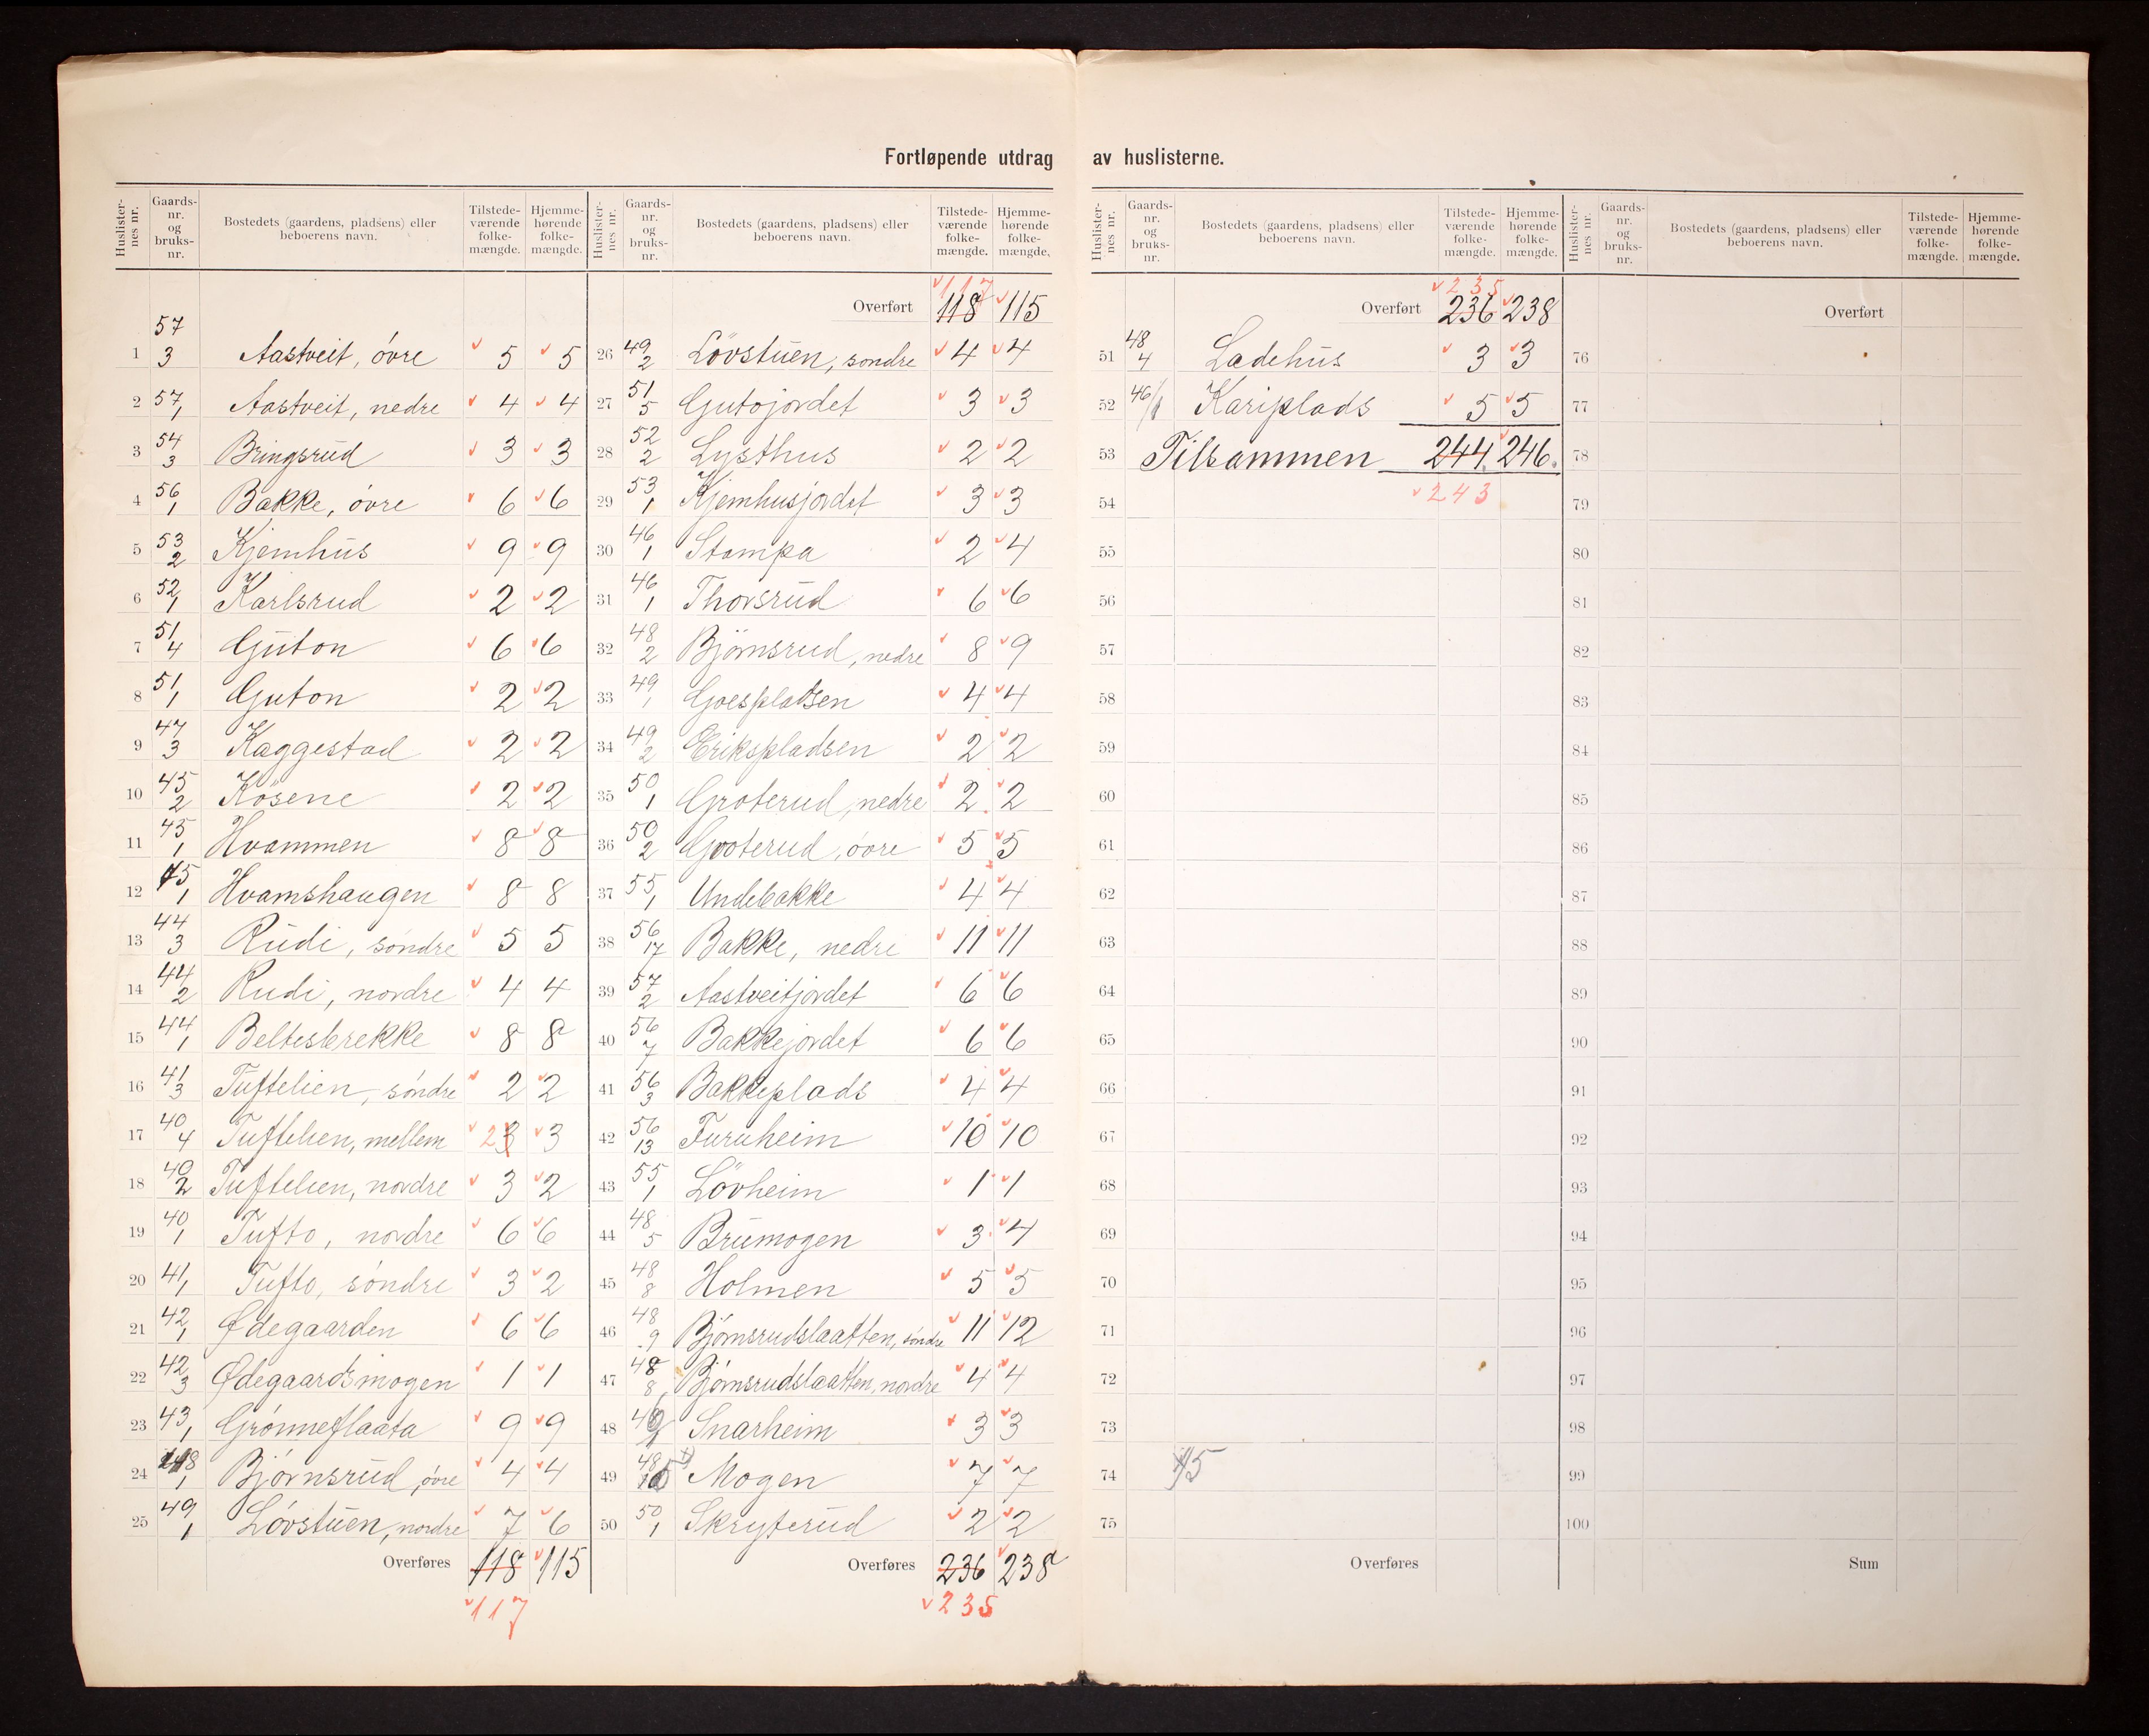 Fortløpende utdrag av huslisterne.
Huslisternes nr. | Gaardsnr. og bruksnr. | Bostedets (gaardens, pladsens) eller beboerens navn. | Tilstedeværende folkemængde. | Hjemmehørende folkemængde.
1 57 3 Aastveit, övre 5 5
2 57 1 Aastveit, nedre 4 4
3 54 3 Bringsrud 3 3
4 56 1 Bakke, övre 6 6
5 53 2 Kjemhus 9 9
6 52 1 Karlsrud 2 2
7 51 4 Guton 6 6
8 51 1 Guton 2 2
9 47 3 Kaggestad 2 2
10 45 2 Kösene 2 2
11 45 1 Hvammen 8 8
12 45 1 Hvamshaugen 8 8
13 44 3 Rudi, söndre 5 5
14 44 2 Rudi, nordre 4 4
15 44 1 Beltesbrekke 8 8
16 41 3 Tuftelien, söndre 2 2
17 40 4 Tuftelien, mellem 2 3 3
18 40 2 Tuftelien, nordre 3 2
19 40 1 Tufto, nordre 6 6
20 41 1 Tufto, söndre 3 2
21 42 1 Ødegaarden 6 6
22 42 3 Ødegaardsmogen 1 1
23 43 1 Grönneflaata 9 9
24 48 1 Björnsrud, övre 4 4
25 49 1 Lövstuen, nordre 7 6
Overføres 118 115
117
Huslisternes nr. | Gaardsnr. og bruksnr. | Bostedets (gaardens, pladsens) eller beboerens navn. | Tilstedeværende folkemængde. | Hjemmehørende folkemængde.
117
Overført 118 115
26 49 2 Lövstuen, sondre 4 4
27 51 5 Gutojordet 3 3
28 52 2 Lysthus 2 2
29 53 1 Kjemhusjordet 3 3
30 46 1 Stampa 2 4
31 46 1 Thorsrud 6 6
32 48 2 Björnsrud, nedre 8 9
33 49 1 Goespladsen 4 4
34 49 2 Erikspladsen 2 2
35 50 1 Groterud, nedre 2 2
36 50 2 Groterud, övre 5 5
37 55 1 Undebakke 4 4
38 56 17 Bakke, nedre 11 11
39 57 2 Aastveitjordet 6 6
40 56 7 Bakkejordet 6 6
41 56 3 Bakkeplads 4 4
42 56 13 Furuheim 10 10
43 55 1 Lövheim 1 1
44 48 5 Brumogen 3 4
45 48 8 Holmen 5 5
46 48 9 Björnsrudslaatten, söndre 11 12
47 48 8 Björnsrudslaatten, nordre 4 4
48 Snarheim 3 3
49 48 Mogen 7 7
50 50 1 Skryterud 2 2
Overføres 236 238
235
Huslisternes nr. | Gaardsnr. og bruksnr. | Bostedets (gaardens, pladsens) eller beboerens navn. | Tilstedeværende folkemængde. | Hjemmehørende folkemængde.
235
Overført 236 238
51 48 4 Ladehus 3 3
52 46/1 Kariplads 5 5
53 Tilsammen 244. 246.
54 243
55
56
57
58
59
60
61
62
63
64
65
66
67
68
69
70
71
72
73
74 45
75
Overføres
Huslisternes nr. | Gaardsnr. og bruksnr. | Bostedets (gaardens, pladsens) eller beboerens navn. | Tilstedeværende folkemængde. | Hjemmehørende folkemængde.
Overført
76
77
78
79
80
81
82
83
84
85
86
87
88
89
90
91
92
93
94
95
96
97
98
99
100
Sum